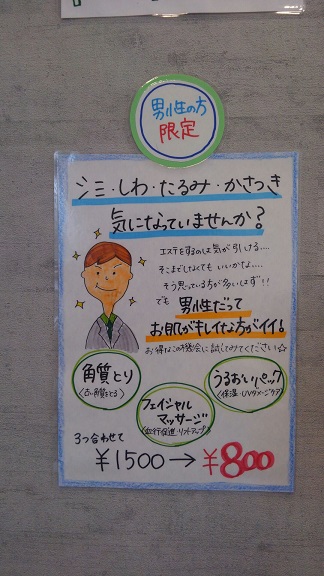 男性の方
限定
シミ・しわ・たるみ・かさつき
気になっていませんか?
エステをするのは気が引ける....
そこまでしなくてもいいかな....
そう思っている方が多いはず!!
でも 男性だって
お肌がキレイな方がイイ!
お得なこの機会に試してみてください☆
角質とり
(古い角質をとる)
うるおいパック
(保湿・UVダメージケア)
フェイシャル
マッサージ
(血行促進・リフトアップ)
3つ合わせて
¥1500→¥800